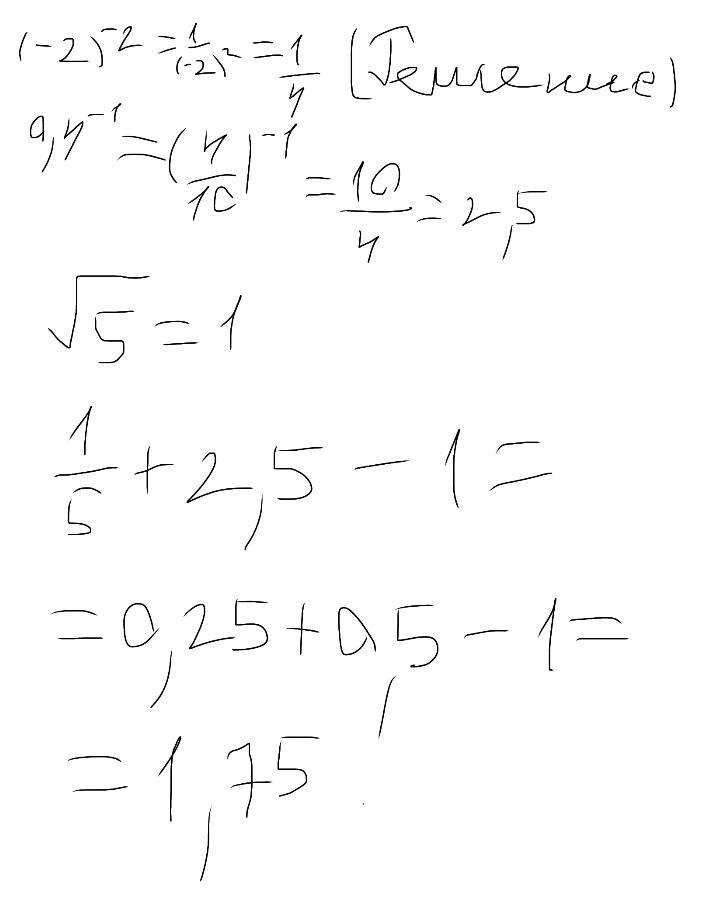 (-2)⁻² = 1/(-2)² = 1/4 (Решение)
0,4⁻¹ = (4/10)⁻¹ = 10/4 = 2,5
√5 = 1
1/5 + 2,5 - 1 =
= 0,25 + 0,5 - 1 =
= 1,75